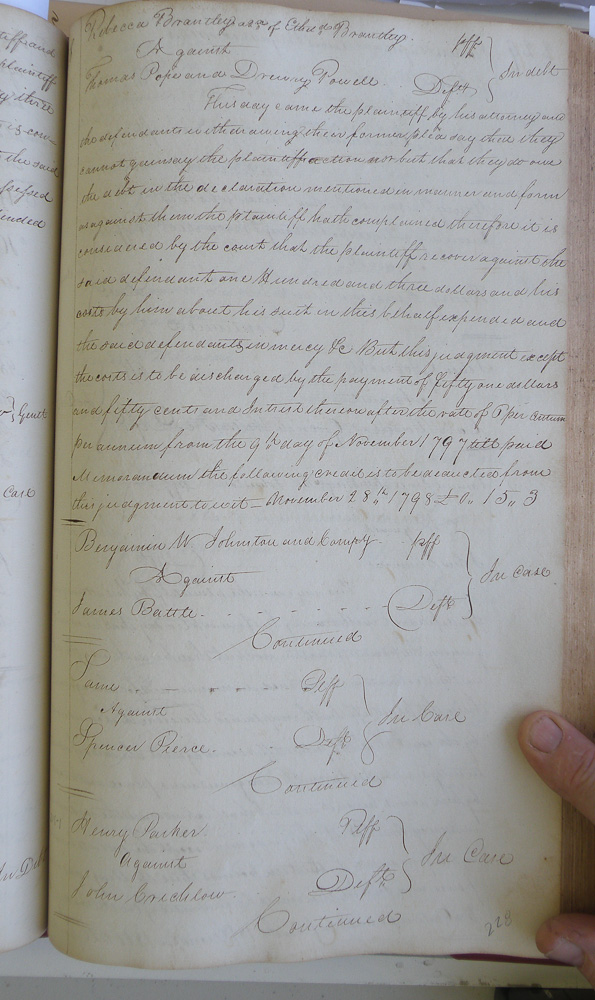 Rebecca Brantley of Brantley. plff
Against } In debt
Thomas Pope and Drewry Powell. Defts
This day came the plaintiff by his attorney and
the defendants withdrawing their former plea say that they
cannot gainsay the plaintiffs action nor but that they do owe
the debt in the declaration mentioned in manner and form
as against them the plaintiff hath complained therefore it is
considered by the court that the plaintiff recover against the
said defendant one Hundred and three dollars and his
costs by him about his suit in this behalf expended and
the said defendants in mercy &c But this judgment except
the costs is to be discharged by the payment of fifty one dollars
and fifty cents and Intrest thereon after the rate of per Centum
per annum from the 9th day of November 1797 till paid
Memorandum the following credit is to be deducted from
this judgment to wit - November 28th 1798 £0,, 15,, 3
Benjamin W. Johnston and Compy- plff
Against } In Case
James Battle. - - - - - - - Deft
Continued
Same - - - - - Plff
Against } In Case
Spencer Pierce. Deft
Continued
Henry Parker. Plff
Against } In Case
John Crichlow. Deft
Continued
228
tiff and
plaintiff
three
is con-
the said
pended
Gentt
Case
In Deb